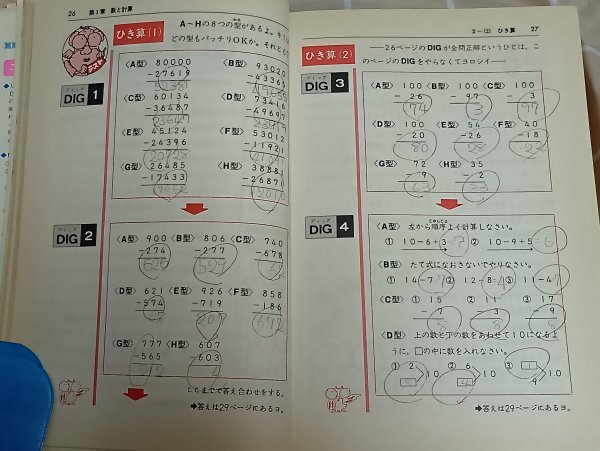 26 第1章 数と計算
ラスト
ひき算(1)
A〜Hの8つの型があるよ。キミ
どの型もバッチリOKか。それとも
ディッグ
DIG 1
〈A型〉 80000 〈B型〉 93020
-27619 -43365
52381
〈C型〉 60134 〈D型〉 73416
-36487 -49697
23647 23719
〈E型〉 45124 〈F型〉 53012
-24396 -11921
20728
〈G型〉 26485 〈H型〉 38888
-17433 -26871
ディッグ
DIG 2
〈A型〉 900 〈B型〉 806 〈C型〉 740
-274 -277 -678
626
〈D型〉 621 〈E型〉 926 〈F型〉 858
-574 -719 -186
207 672
〈G型〉 777 〈H型〉 607
-565 -603
212 4
ここまでで答え合わせをする。
➡答えは29ページにあるヨ。
2-(2) ひき算 27
ひき算(2)
―26ページのDIGが全問正解というひとは、こ
のページのDIGをやらなくてヨロシイ―
ディッグ
DIG 3
〈A型〉 100 〈B型〉 100 〈C型〉 100
-26 -97 -3
74 3 97
〈D型〉 100 〈E型〉 54 〈F型〉 40
-20 -26 -18
80 28 22
〈G型〉 72 〈H型〉 35
-9 -2
63 33
ディッグ
DIG 4
〈A型〉 左から順序よく計算しなさい。
① 10-6+3=7 ② 10-9+5=6
〈B型〉 たて式になおさないでやりなさい。
① 14-7=7 ② 12-8= ③ 11-4=7
〈C型〉 ① 15 ② 11 ③ 17
-7 -3 -9
8 8 8
〈D型〉 上の数と下の数をあわせて10になるよ
うに、□の中に数を入れなさい。
① 2 ② 6 ③ □
□ 10 □ 10 9 10
➡答えは29ページにあるヨ。